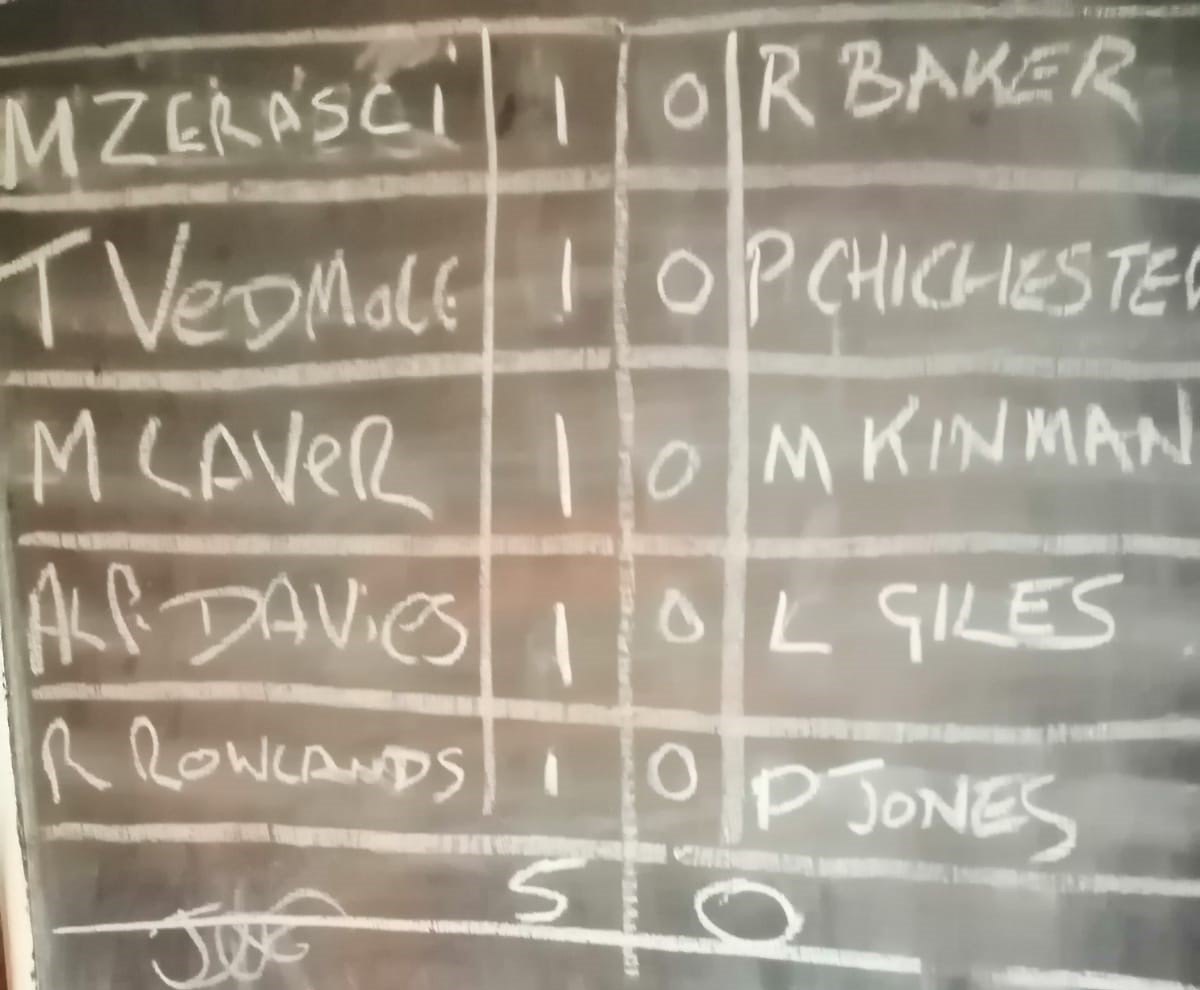 M ZERASCI 1 0 R BAKER
T VeDMoLE 1 0 P CHICHESTER
M LAVeR 1 0 M KINMAN
ALF. DAViES 1 0 L GILES
R ROWLANDS 1 0 P JONES
5 0